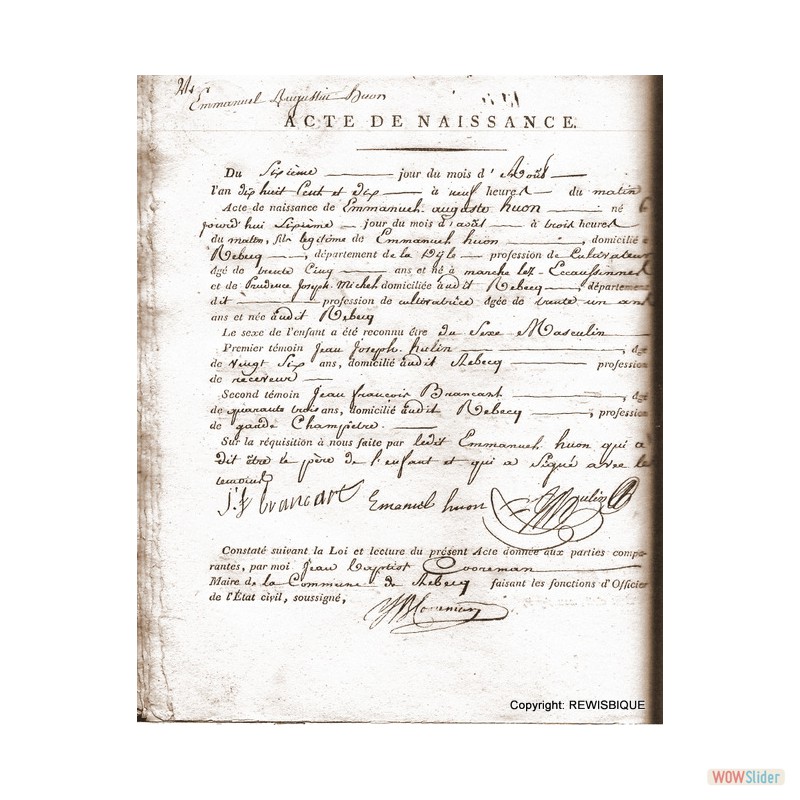 Emmanuel Augustin huon
ACTE DE NAISSANCE.
Du Sixième jour du mois d'Août
l'an dix huit Cent et dix à neuf heures du matin
Acte de naissance de Emmanuel auguste huon né
jourd'hui Sixième jour du mois d'août à trois heures
du matin, fils legitime de Emmanuel huon domicilié
Rebecq, département de la Dyle profession de Cultivateur
âgé de trente Cinq ans et né à marche lez-Ecaussinnes
et de Prudence Joseph Michel domiciliée audit Rebecq, département
dit profession de cultivatrice âgée de trente un ans
ans et née audit Rebecq
Le sexe de l'enfant a été reconnu être du Sexe Masculin
Premier témoin Jean Joseph hulin, âgé
de vingt Six ans, domicilié audit Rebecq profession
de receveur
Second témoin Jean francois Brancart, âgé
de quarante trois ans, domicilié audit Rebecq, profession
de garde Champietre.
Sur la réquisition à nous faite par ledit Emmanuel huon qui a
dit être le père de l'enfant et qui a Signé avec les
temoins
j: f brancart Emanuel huon hulin
Constaté suivant la Loi et lecture du présent Acte donnée aux parties compa-
rantes, par moi Jean baptist Cooreman
Maire de la Commune de Rebecq faisant les fonctions d'Officier
de l'État civil, soussigné,
JBCooreman
Copyright: REWISBIQUE
WOWSlider